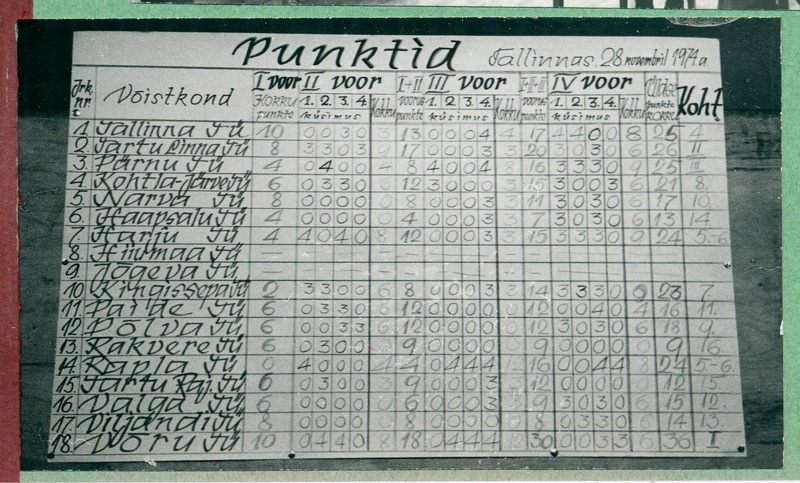 Punktid Tallinnas. 28 novembril 1974.a.
Jrk. nr. Võistkond I voor II voor I+II III voor I+II+III IV voor Üldse Koht
Kokku punkte 1. 2. 3. 4. Kokku voorus punkte 1. 2. 3. 4. Kokku voorus punkte 1. 2. 3. 4. Kokku punkte kokku
küsimus küsimus küsimus
1. Tallinna TÜ 10 0 0 3 0 3 13 0 0 0 4 4 17 4 4 0 0 8 25 4
2. Tartu Linna TÜ 8 3 3 0 3 9 17 0 0 0 3 3 20 3 0 3 0 6 26 II
3. Pärnu TÜ 4 0 4 0 0 4 8 4 0 0 4 8 16 3 3 3 0 9 25 III
4. Kohtla-Järve TÜ 6 0 3 3 0 6 12 3 0 0 0 3 15 3 0 0 3 6 21 8.
5. Narva TÜ 8 0 0 0 0 0 8 0 0 0 3 3 11 3 0 3 0 6 17 10.
6. Haapsalu TÜ 4 0 0 0 0 0 4 0 0 0 3 3 7 3 0 3 0 6 13 14.
7. Harju TÜ 4 4 0 4 0 8 12 0 0 0 3 3 15 3 3 3 0 9 24 5.-6.
8. Hiiumaa TÜ
9. Jõgeva TÜ
10. Kingissepa TÜ 2 3 3 0 0 6 8 0 0 0 3 3 14 3 3 3 0 9 23 7.
11. Paide TÜ 6 0 3 3 0 6 12 0 0 0 0 0 12 0 0 4 0 4 16 11.
12. Põlva TÜ 6 0 0 3 3 6 12 0 0 0 0 0 12 3 0 3 0 6 18 9.
13. Rakvere TÜ 6 0 3 0 0 3 9 0 0 0 0 0 9 0 0 0 0 0 9 16.
14. Rapla TÜ 0 4 0 0 0 4 4 0 4 4 4 16 0 0 4 4 8 24 5-6.
15. Tartu Raj. TÜ 6 0 3 0 0 3 9 0 0 0 3 3 12 0 0 0 0 0 12 15.
16. Valga TÜ 6 0 0 0 0 0 6 0 0 0 3 3 9 3 0 3 0 6 15 12.
17. Viljandi TÜ 8 0 0 0 0 0 8 0 0 0 0 0 8 0 3 3 0 6 14 13.
18. Võru TÜ 10 0 4 4 0 8 18 0 4 4 4 12 30 0 0 3 3 6 36 I